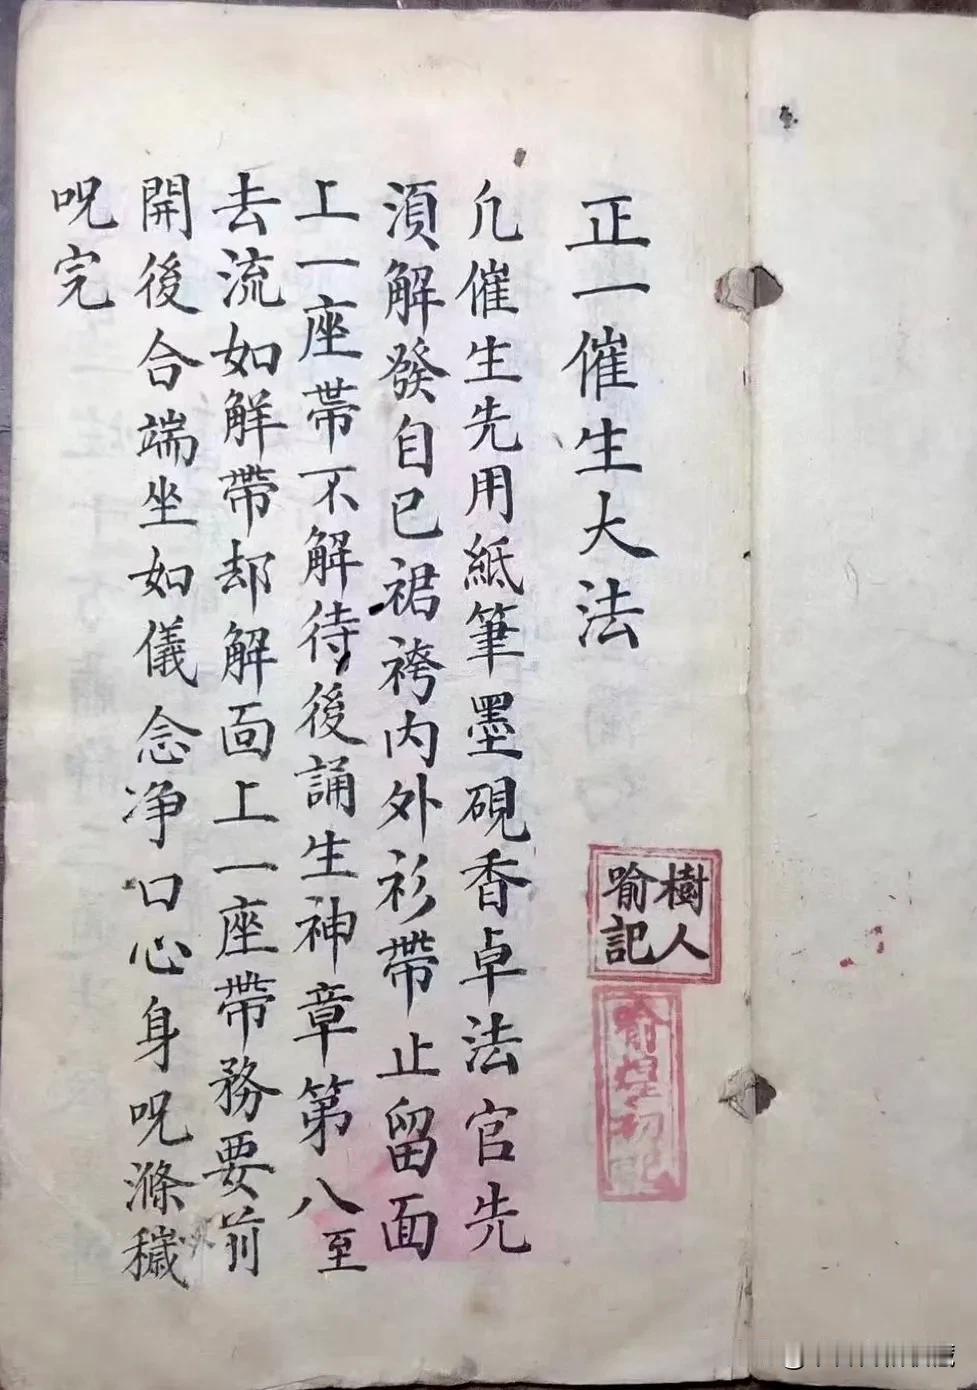 正一催生大法
凢催生先用紙筆墨硯香卓法官先
湏解發自已裾袴内外衫帶止留面
上一座帶不解待後誦生神章第八至
去流如觧帶却解面上一座帶務要前
開後合端坐如儀念净口心身呪滌穢
呪完
樹人
喻記
喻煌初記